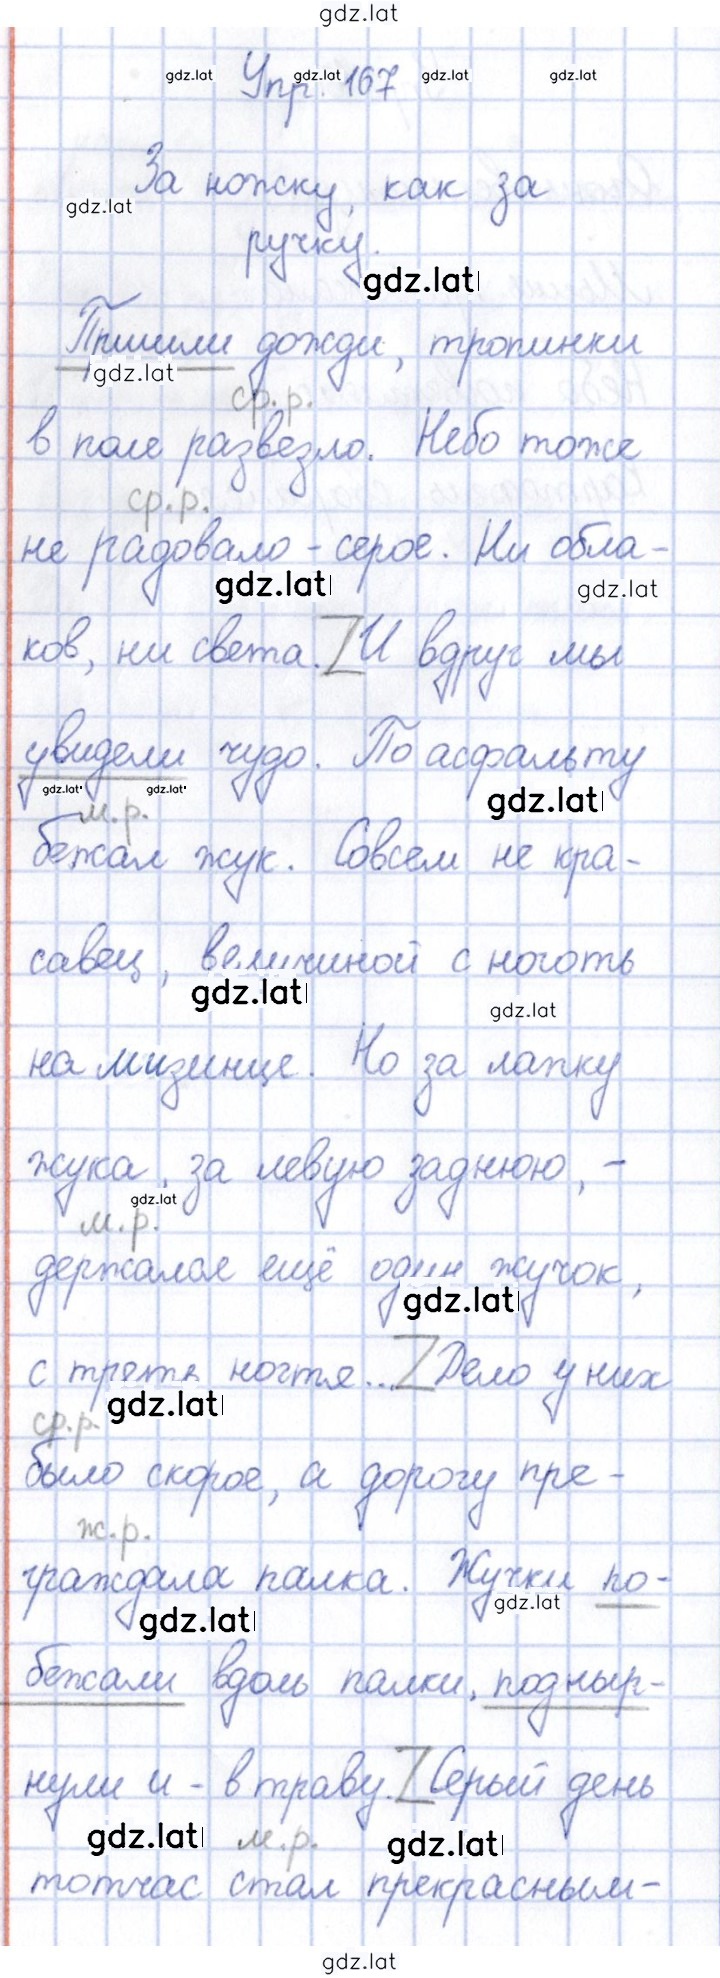 gdz.lat
gdz.lat gdz.lat gdz.lat gdz.lat
Упр. 167
За ножку, как за
gdz.lat
ручку.
gdz.lat
Пришли дожди, тропинки
gdz.lat
ср.р.
в поле развезло. Небо тоже
ср.р.
не радовало - серое. Ни обла-
gdz.lat gdz.lat
ков, ни света. Z И вдруг мы
увидели чудо. По асфальту
gdz.lat gdz.lat gdz.lat
м.р.
бежал жук. Совсем не кра-
савец, величиной с ноготь
gdz.lat gdz.lat
на мизинце. Но за лапку
жука, за левую заднюю, -
gdz.lat
м.р.
держался ещё один жучок,
gdz.lat
с треть ногтя... Z Дело у них
gdz.lat
ср.р.
было скорое, а дорогу пре-
ж.р.
граждала палка. Жучки по-
gdz.lat gdz.lat
бежали вдоль палки, подныр-
нули и - в траву. Z Серый день
gdz.lat м.р. gdz.lat
тотчас стал прекрасным-
gdz.lat